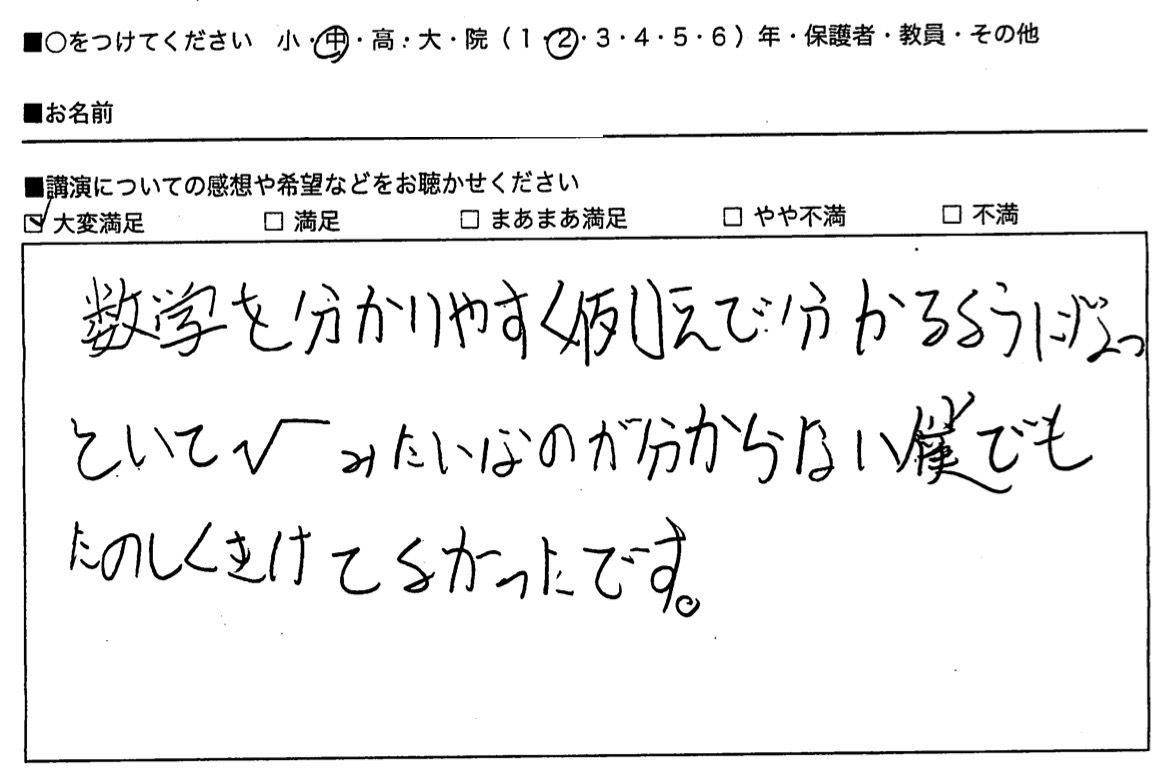 ■○をつけてください 小・中・高・大・院(1・2・3・4・5・6)年・保護者・教員・その他
■お名前
■講演についての感想や希望などをお聴かせください
☑ 大変満足 □ 満足 □ まあまあ満足 □ やや不満 □ 不満
数学を分かりやすく例えで分かるようになっ
ていて√みたいなのが分からない僕でも
たのしくきけてよかったです。